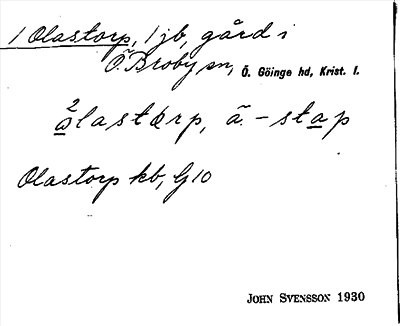 1 Olastorp, 1 jb, gård i
Ö. Broby sn, Ö. Göinge hd, Krist. l.
²alastorp, ā. – stap
Olastorp kb, G 10
JOHN SVENSSON 1930